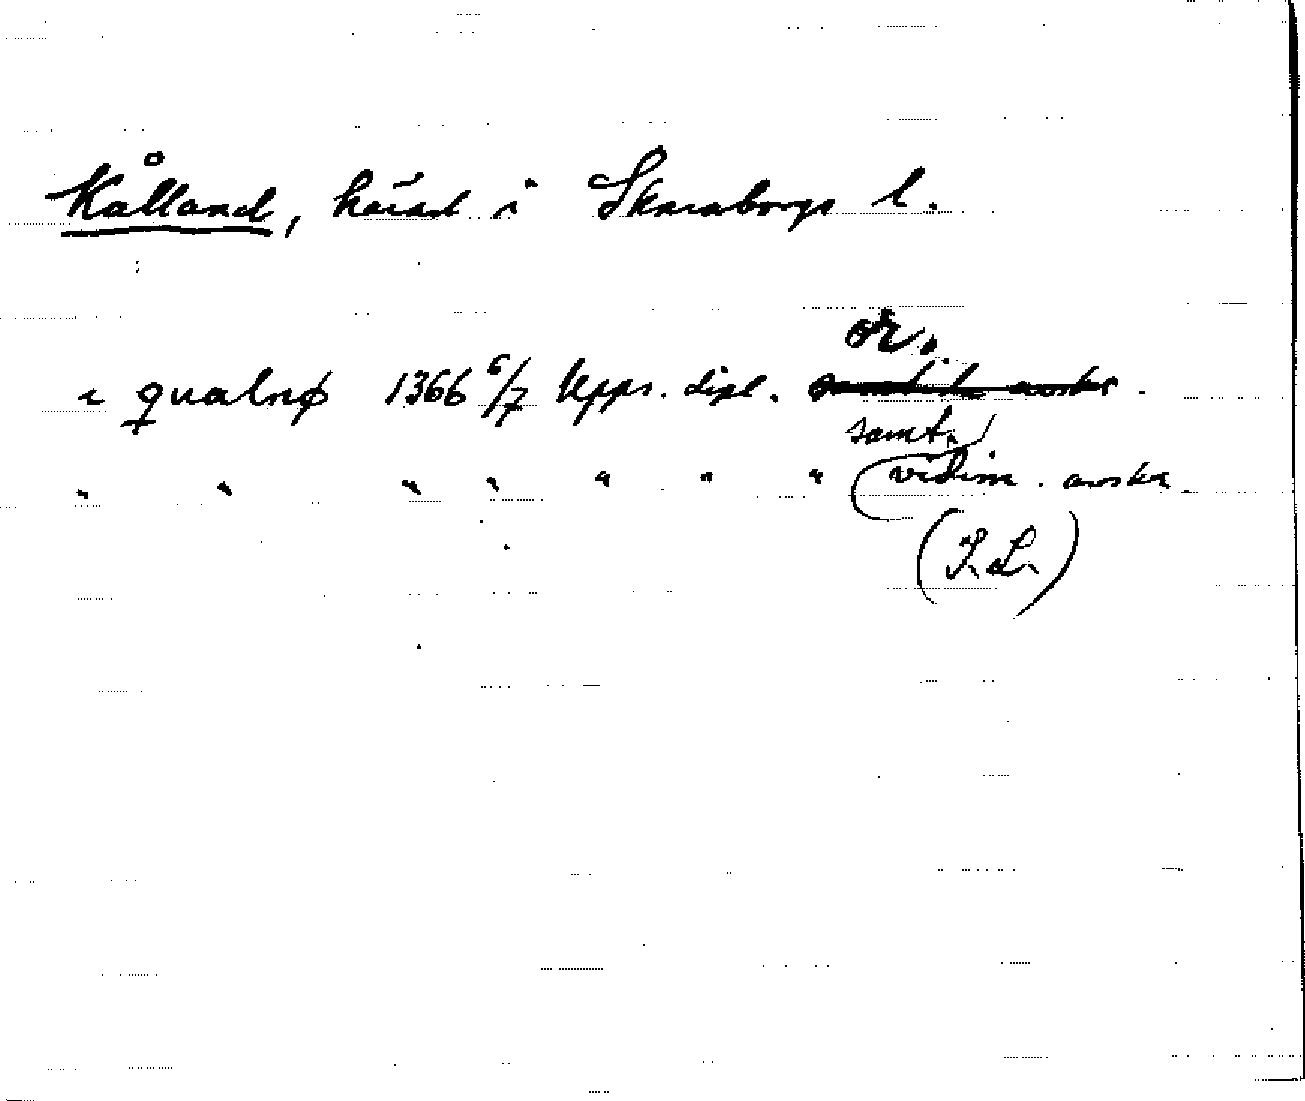 Kålland, härad i Skaraborgs l.
or.
i qualnø 1366 6/7 Upps. dipl.
samt.
" " " " " " " vidim. avskr.